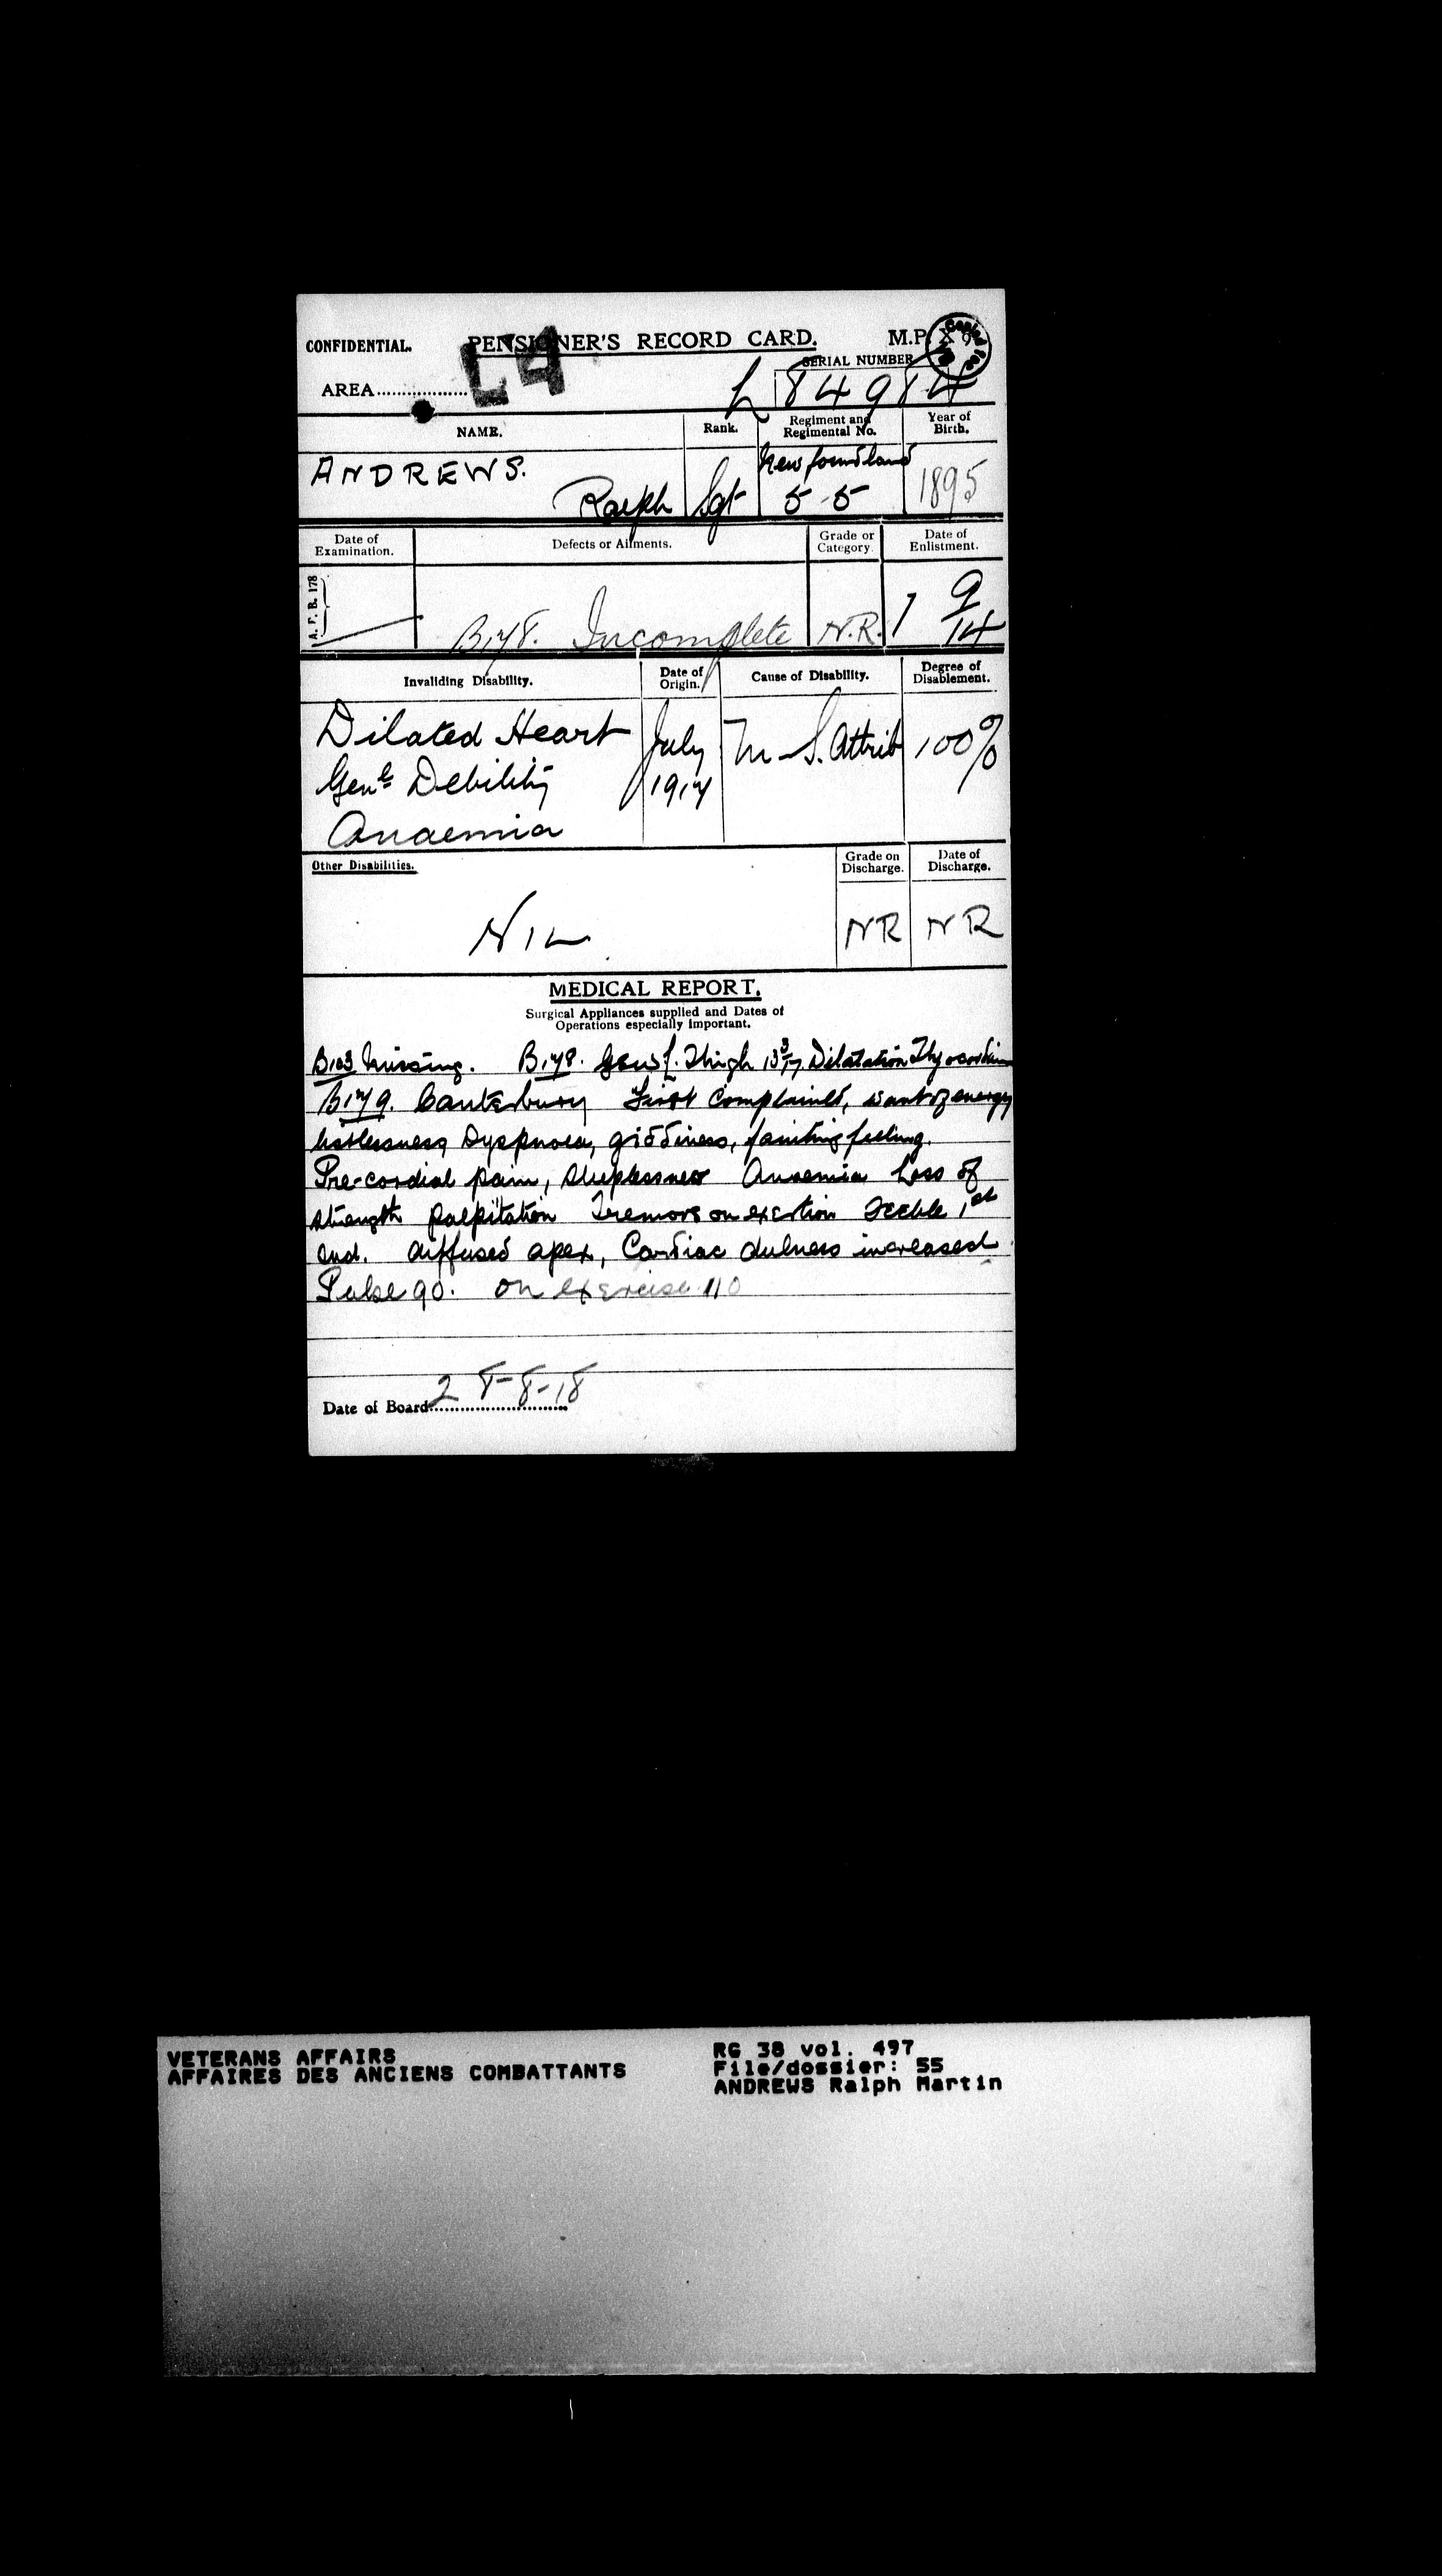 CONFIDENTIAL. PENSIONER'S RECORD CARD. M.P. X 9
SERIAL NUMBER
AREA.................. L4 L 84984
NAME. Rank. Regiment and Regimental No. Year of Birth.
ANDREWS. Ralph Sgt Newfoundland 55 1895
Date of Examination. Defects or Ailments. Grade or Category. Date of Enlistment.
A. F. B. 178 B178. Incomplete N.R. 1 9/14
Invaliding Disability. Date of Origin. Cause of Disability. Degree of Disablement.
Dilated Heart July M S. Attrib 100%
Genl Debility 1917
Anaemia
Other Disabilities. Grade on Discharge. Date of Discharge.
NIL NR NR
MEDICAL REPORT.
Surgical Appliances supplied and Dates of
Operations especially important.
B103 Missing. B178. Thigh Dilatation
B179. Canterbury First complained, want of energy
listlessness, Dyspnoea, giddiness, fainting feeling.
Pre-cordial pain, sleeplessness Anaemia Loss of
strength palpitation Tremors on exertion Feeble 1st
snd. diffused apex, Cardiac dulness increased
Pulse 90. on exercise 110
Date of Board 28-8-18
VETERANS AFFAIRS
AFFAIRES DES ANCIENS COMBATTANTS
RG 38 vol. 497
File/dossier: 55
ANDREWS Ralph Martin